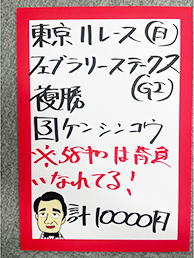 東京11レース(日)
フェブラリーステークス
(GI)
複勝
3 ケンシンコウ
※、58キロは背負
いなれてる!
計10000円